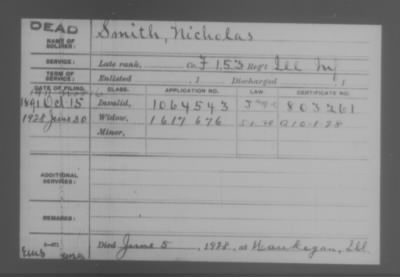 DEAD
NAME OF SOLDIER: Smith, Nicholas
SERVICE: Late rank, Co. F 153 Reg't Ill Inf
TERM OF SERVICE: Enlisted , 1 Discharged , 1
DATE OF FILING. CLASS. APPLICATION NO. LAW. CERTIFICATE NO.
1891 Oct. 15 Invalid, 1064543 803261
1928 June 30 Widow, 1617676 5-1-20 A 10-1-28
Minor,
ADDITIONAL SERVICES:
REMARKS:
Died June 5, 1928, at Waukegan, Ill.